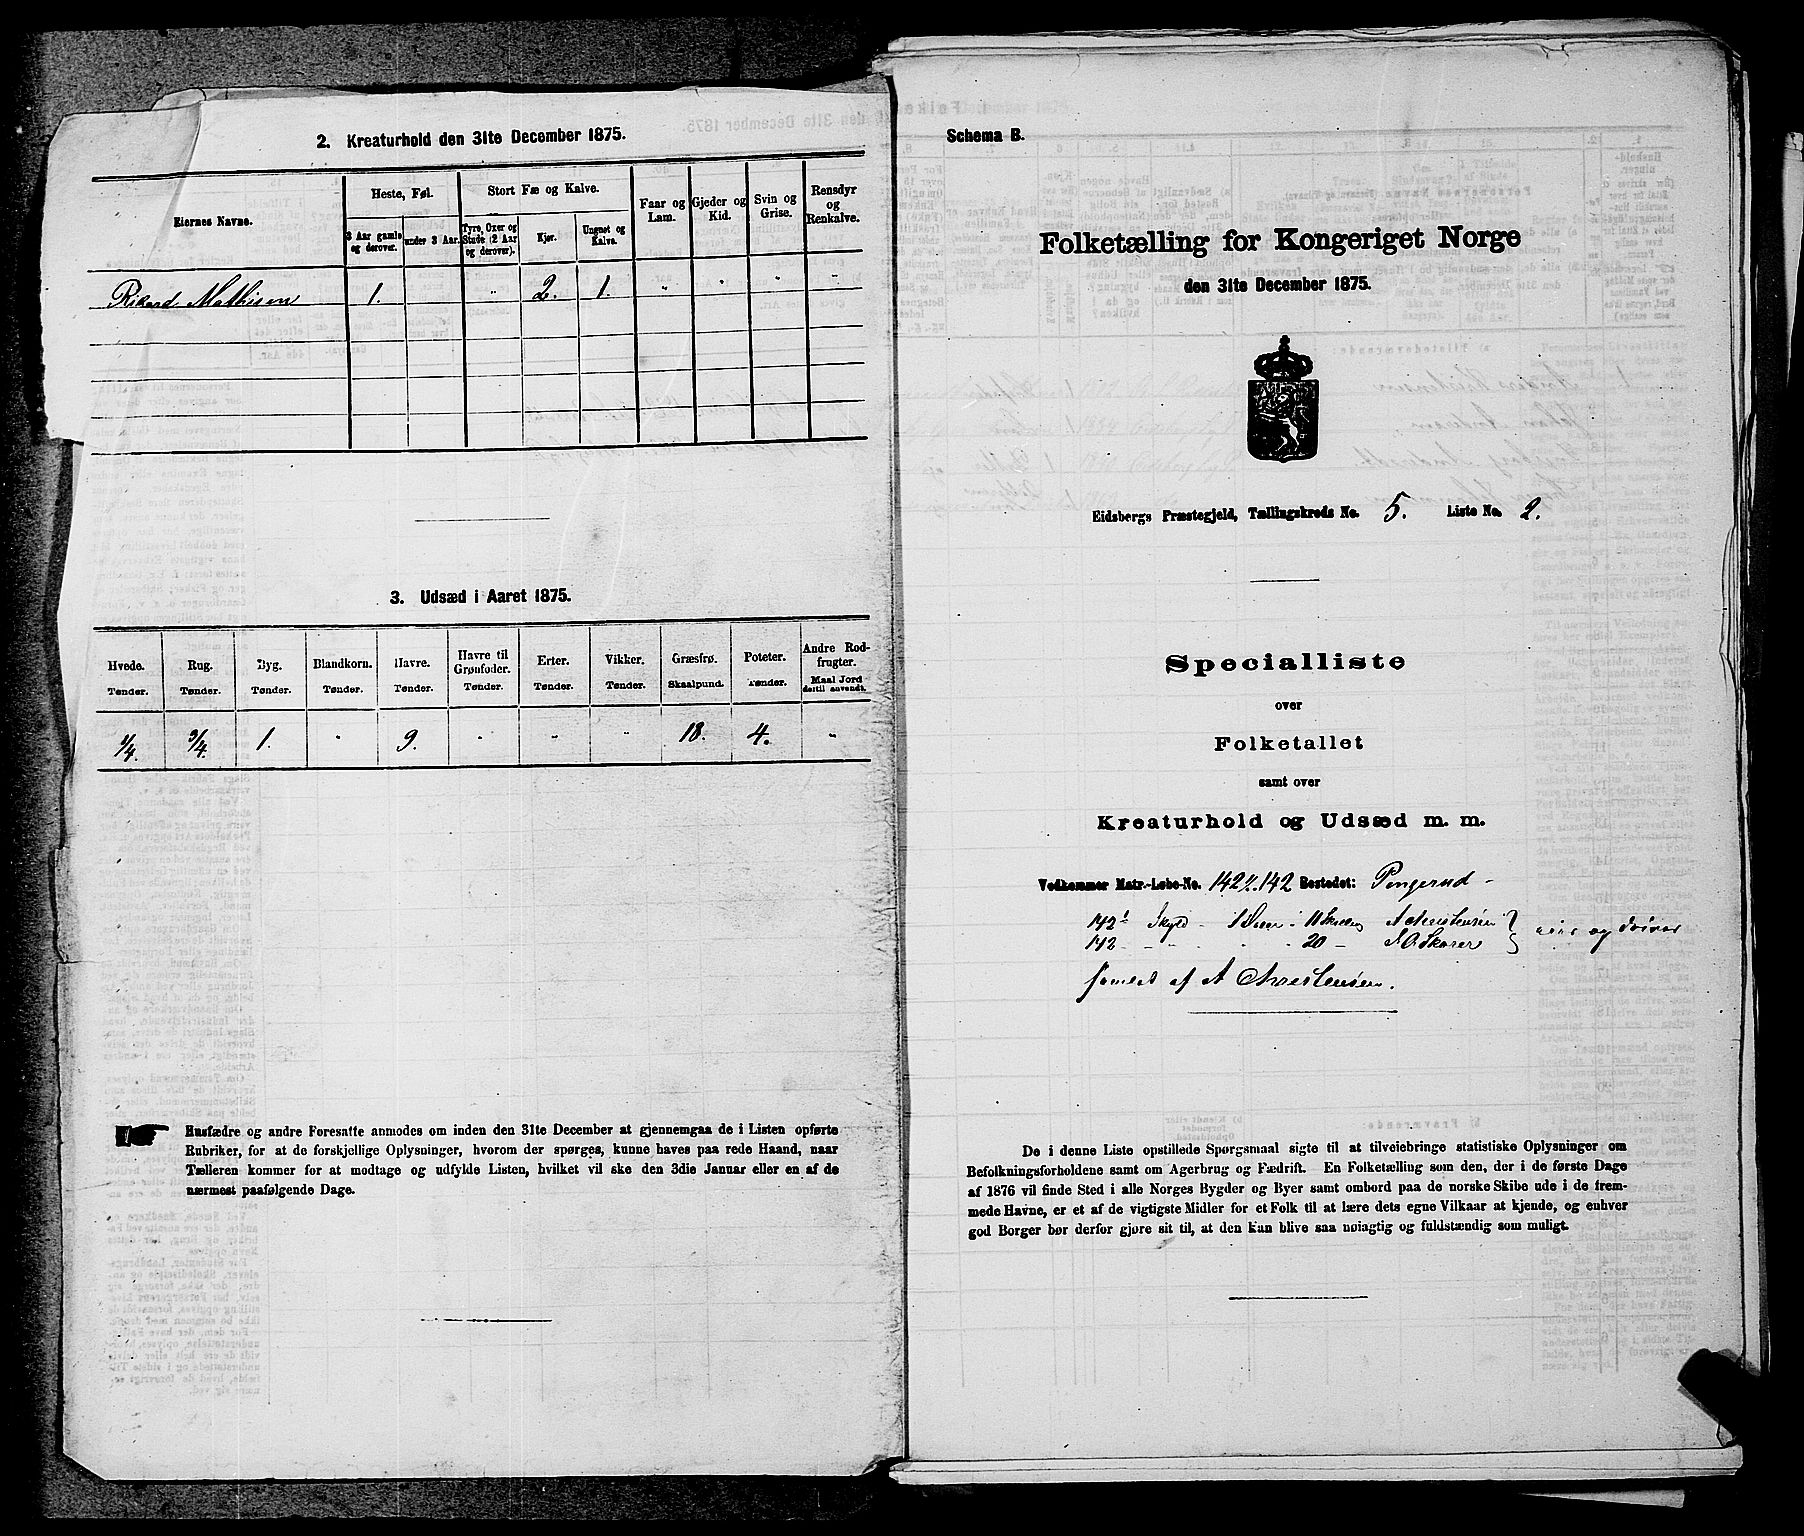 2. Kreaturhold den 31te December 1875.
Eiernes Navne.
Heste, Føl.
3 Aar gamle og derover.
under 3 Aar.
Stort Fæ og Kalve.
Tyre, Oxer og Stude (2 Aar og derover).
Kjør.
Ungnet og Kalve.
Faar og Lam.
Gjeder og Kid.
Svin og Grise.
Rensdyr og Renkalve.
Rikard Mathisen 1. " 2. 1. " " " "
3. Udsæd i Aaret 1875.
Hvede. Rug. Byg. Blandkorn. Havre. Havre til Grønfoder. Erter. Vikker. Græsfrø. Poteter. Andre Rodfrugter.
Tønder. Tønder. Tønder. Tønder. Tønder. Tønder. Tønder. Tønder. Skaalpund. Tønder. Maal Jord dertil anvendt.
1/4. 3/4. 1. " 9. " " " 18. 4. "
Husfædre og andre Foresatte anmodes om inden den 31te December at gjennemgaa de i Listen opførte
Rubriker, for at de forskjellige Oplysninger, hvorom der spørges, kunne haves paa rede Haand, naar
Tælleren kommer for at modtage og udfylde Listen, hvilket vil ske den 3die Januar eller en af de
nærmest paafølgende Dage.
Schema B.
Folketælling for Kongeriget Norge
den 31te December 1875.
Eidsbergs Præstegjeld, Tællingskreds No. 5. Liste No. 2.
Specialliste
over
Folketallet
samt over
Kreaturhold og Udsæd m. m.
Vedkommer Matr.-Løbe-No. 142 142 Bostedet: Pengerud
142 Skyld 1 11 A Christensen
142 " " 20 Skorer og
af A Christensen.
De i denne Liste opstillede Spørgsmaal sigte til at tilveiebringe statistiske Oplysninger om
Befolkningsforholdene samt om Agerbrug og Fædrift. En Folketælling som den, der i de første Dage
af 1876 vil finde Sted i alle Norges Bygder og Byer samt ombord paa de norske Skibe ude i de frem-
mede Havne, er et af de vigtigste Midler for et Folk til at lære dets egne Vilkaar at kjende, og enhver
god Borger bør derfor gjøre sit til, at den kan blive saa nøiagtig og fuldstændig som muligt.